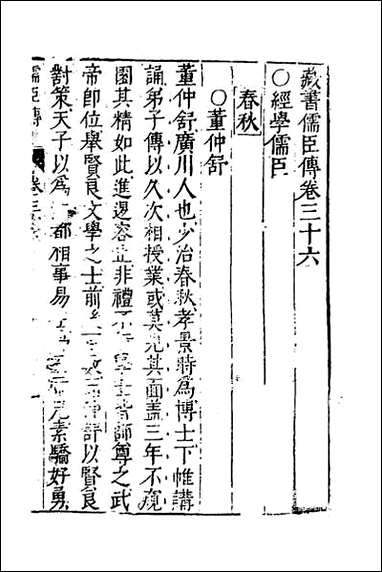 藏書儒臣傳卷三十六
○經學儒臣
春秋
○董仲舒
董仲舒廣川人也少治春秋孝景時爲博士下帷講
誦弟子傳以久次相授業或莫見其面蓋三年不窺
園其精如此進退容止非禮不學士皆師尊之武
帝卽位舉賢良文學之士前後百數而仲舒以賢良
對策天子以爲都相事易王素驕好勇
儒臣傳